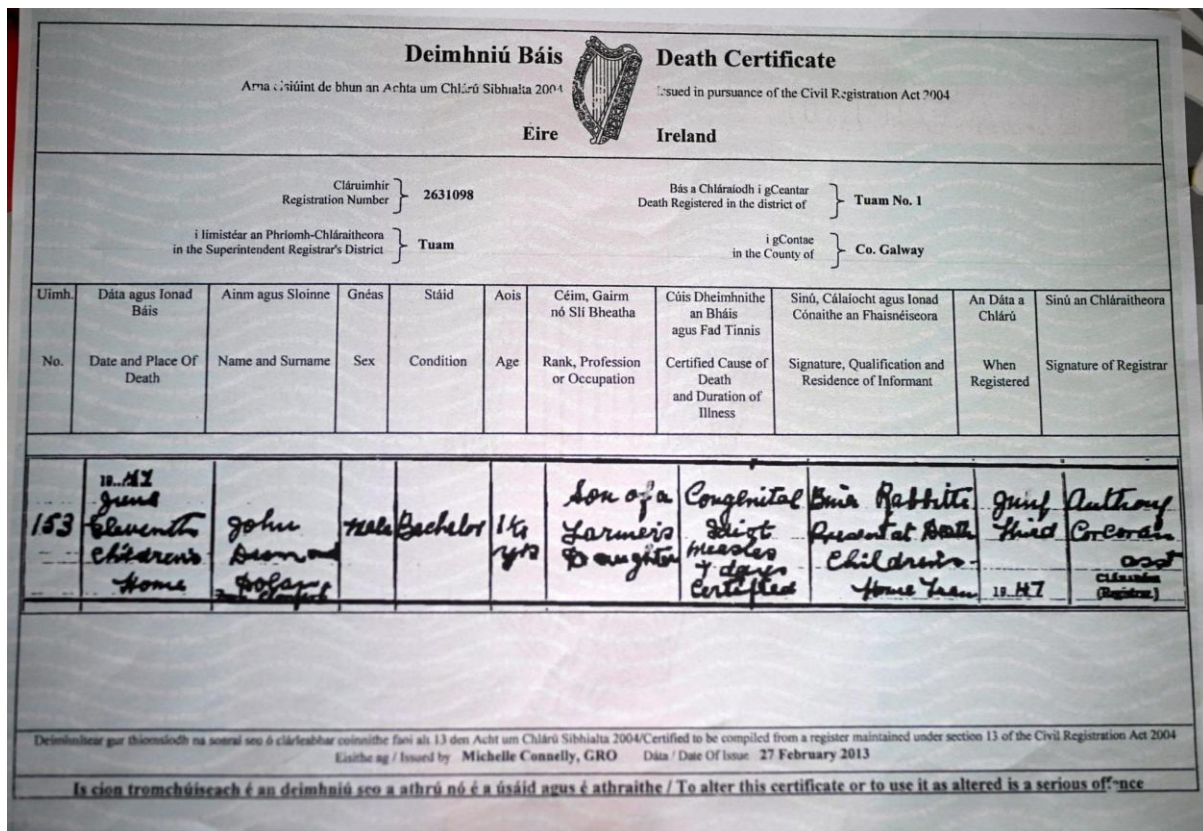 Deimhniú Báis
Death Certificate
Arna eisiúint de bhun an Achta um Chlárú Sibhialta 2004
Issued in pursuance of the Civil Registration Act 2004
Éire
Ireland
Cláruimhir
Registration Number
2631098
Bás a Chláraíodh i gCeantar
Death Registered in the district of
Tuam No. 1
i limistéar an Phríomh-Chláraitheora
in the Superintendent Registrar's District
Tuam
i gContae
in the County of
Co. Galway
Uimh.
No.
Dáta agus Ionad
Báis
Date and Place Of
Death
Ainm agus Sloinne
Name and Surname
Gnéas
Sex
Stáid
Condition
Aois
Age
Céim, Gairm
nó Slí Bheatha
Rank, Profession
or Occupation
Cúis Dheimhnithe
an Bháis
agus Fad Tinnis
Certified Cause of
Death
and Duration of
Illness
Sinú, Cálaíocht agus Ionad
Cónaithe an Fhaisnéiseora
Signature, Qualification and
Residence of Informant
An Dáta a
Chlárú
When
Registered
Sinú an Chláraitheora
Signature of Registrar
153
19..47
June
Eleventh
Children's
Home
John
Desmond
Dolan
Male
Bachelor
1¼
yrs
Son of a
Farmer's
Daughter
Congenital
Idiot
Measles
7 days
Certified
Bina Rabbitte
Present at Death
Children's
Home Tuam
Third
19..47
Anthony
Corcoran
asst
(Registrar.)
Deimhnítear gur thiomsíodh na sonraí seo ó chlárleabhar coinnithe faoi alt 13 den Acht um Chlárú Sibhialta 2004/Certified to be compiled from a register maintained under section 13 of the Civil Registration Act 2004
Eisithe ag / Issued by Michelle Connelly, GRO Dáta / Date Of Issue 27 February 2013
Is cion tromchúiseach é an deimhniú seo a athrú nó é a úsáid agus é athraithe / To alter this certificate or to use it as altered is a serious offence